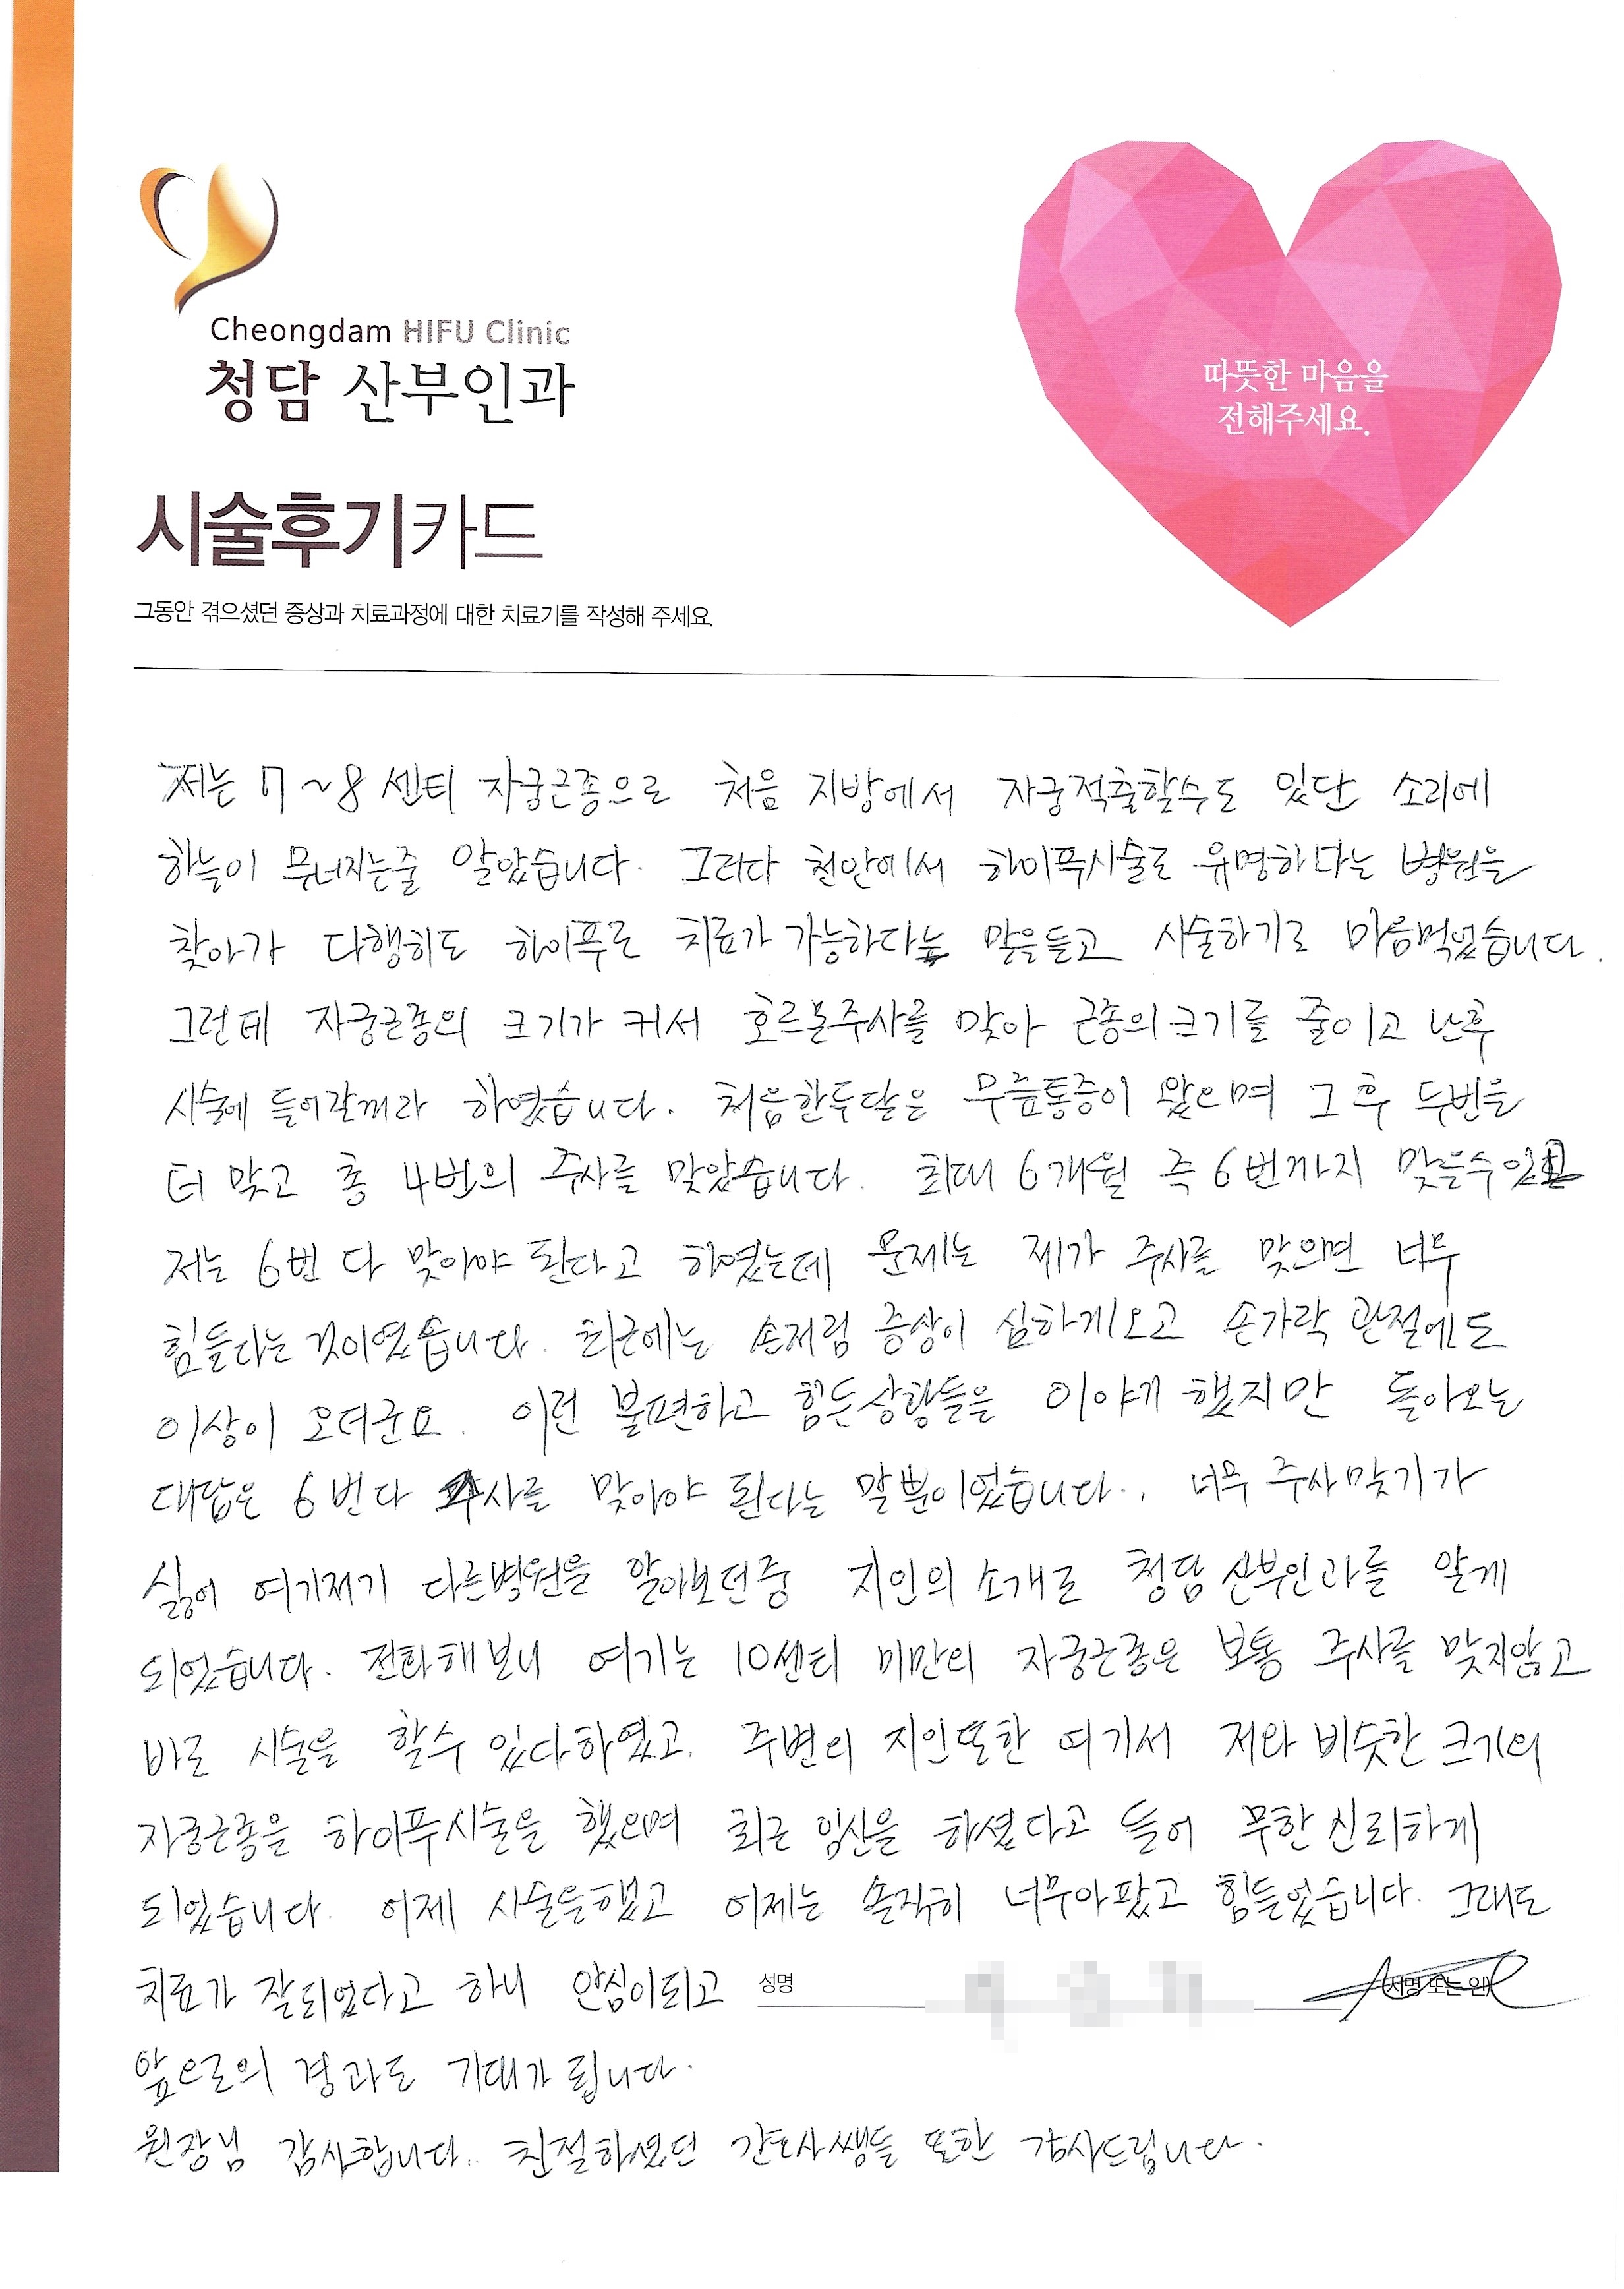 Cheongdam HIFU Clinic
청담 산부인과
따뜻한 마음을
전해주세요.
시술후기카드
그동안 겪으셨던 증상과 치료과정에 대한 치료기를 작성해 주세요.
저는 7~8 센티 자궁근종으로 처음 지방에서 자궁적출할수도 있단 소리에
하늘이 무너지는줄 알았습니다. 그러다 천안에서 하이푸시술로 유명하다는 병원을
찾아가 다행히도 하이푸로 치료가 가능하다는 말을듣고 시술하기로 마음먹었습니다.
그런데 자궁근종의 크기가 커서 호르몬주사를 맞아 근종의크기를 줄이고 난후
시술에 들어갈꺼라 하였습니다. 처음한두달은 무릎통증이 왔으며 그 후 두번을
더 맞고 총 4번의 주사를 맞았습니다. 최대 6개월 즉 6번까지 맞을수있고
저는 6번 다 맞아야 된다고 하였는데 문제는 제가 주사를 맞으면 너무
힘들다는 것이였습니다. 최근에는 손저림 증상이 심하게오고 손가락 관절에도
이상이 오더군요. 이런 불편하고 힘든상황들을 이야기 했지만 돌아오는
대답은 6번다 주사를 맞아야 된다는 말뿐이었습니다.. 너무 주사맞기가
싫어 여기저기 다른병원을 알아보던중 지인의 소개로 청담산부인과를 알게
되었습니다. 전화해보니 여기는 10센티 미만의 자궁근종은 보통 주사를 맞지않고
바로 시술을 할수 있다하였고, 주변의 지인또한 여기서 저와 비슷한 크기의
자궁근종을 하이푸시술을 했으며 최근 임신을 하셨다고 들어 무한신뢰하게
되었습니다. 어제 시술을했고 어제는 솔직히 너무아팠고 힘들었습니다. 그래도
치료가 잘되었다고 하니 안심이되고 성명 (서명 또는 인)
앞으로의 경과도 기대가 됩니다.
원장님 감사합니다.. 친절하셨던 간호사쌤들 또한 감사드립니다.